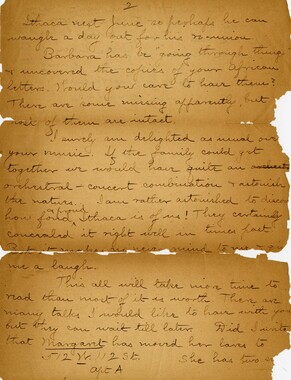 2
Ithaca next June so perhaps he can
wangle a day out for his reunion
Barbara has be going through things
& uncovered the copies of your African
letters. Would you care to have them?
There are some missing apparently but
most of them are intact.
I surely am delighted as usual over
your music. If the family could get
together we would have quite an
orchestral-concert combination & astonish
the natives. I am rather astonished to
how fond Ithaca is of us! They certainly
concealed it right well in times past
me a laugh.
This all will take more time to
read than most of it is worth. There are
many talks I would like to have with you
but they can wait till later. Did I
that Margaret has moved her lares to
512 W. 112 St. She has two
Apt A